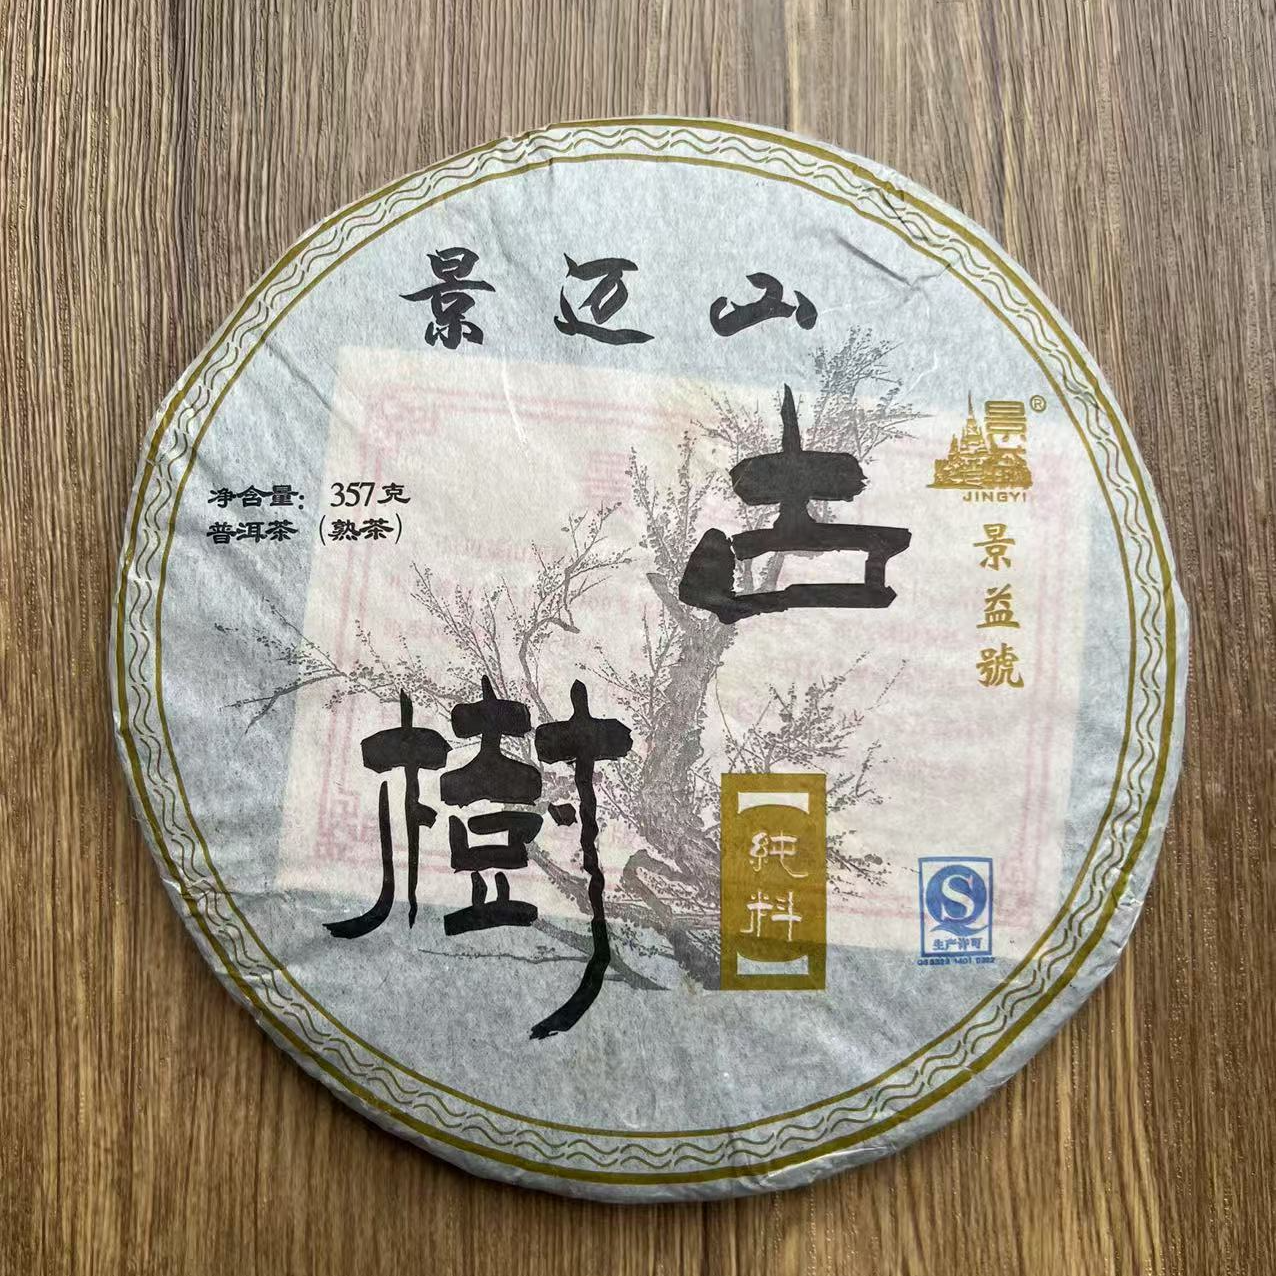 景迈山
古樹
【純料】
净含量：357克
普洱茶（熟茶）
景
®
JINGYI
景益號
S
生产许可